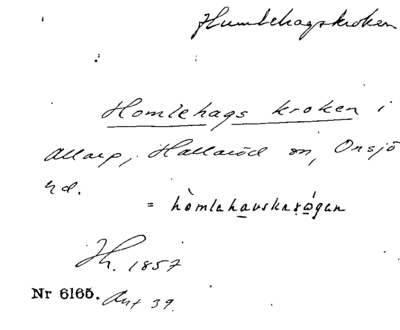 Humlehagskroken
Homlehags kroken i
Allarp, Hallaröd sn, Onsjö
hd.
= hòmlahauskarógan
Hr. 1857
Nr 6165. Ant 39.